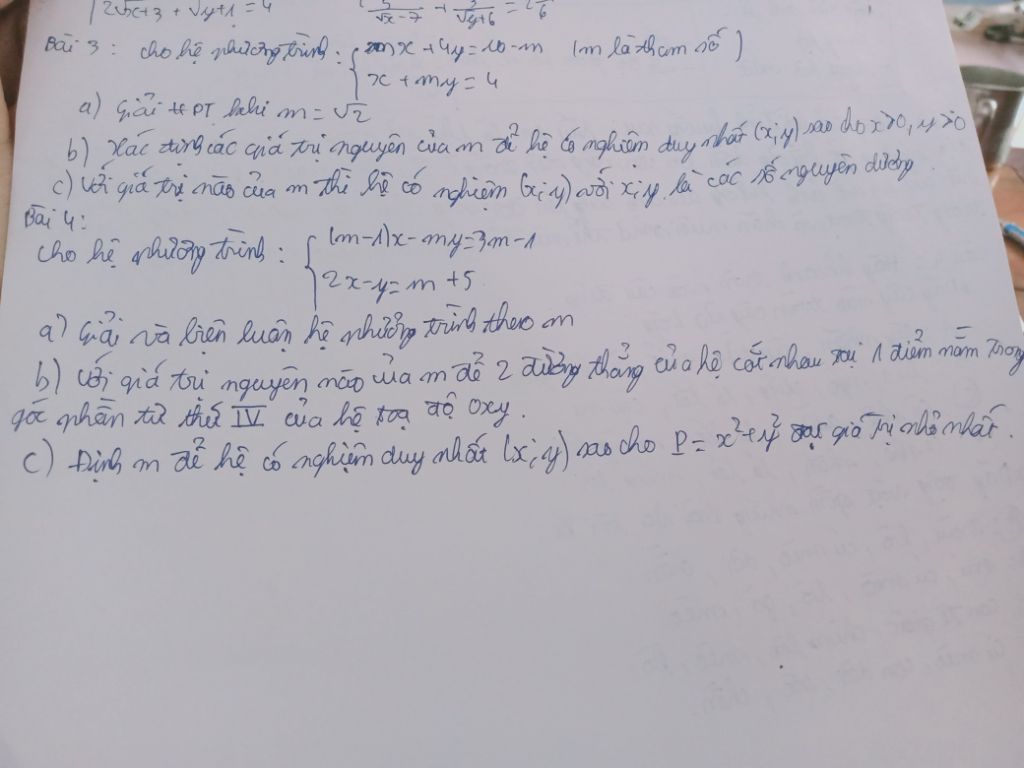 2√x+3 + √y+1 = 4
√x-7 √y+6 = 6
Bài 3: cho hệ phương trình: { mx + 4y = 10 - m (m là tham số)
x + my = 4
a) giải PT khi m = √2
b) Xác định các giá trị nguyên của m để hệ có nghiệm duy nhất (x;y) sao cho x>0, y>0
c) Với giá trị nào của m thì hệ có nghiệm (x;y) với x;y là các số nguyên dương.
Bài 4:
cho hệ phương trình: { (m-1)x - my = 3m - 1
2x - y = m + 5
a) Giải và biện luận hệ phương trình theo m
b) Với giá trị nguyên nào của m để 2 đường thẳng của hệ cắt nhau tại 1 điểm nằm trong
góc phần tử thứ IV của hệ toạ độ Oxy.
c) Định m để hệ có nghiệm duy nhất (x;y) sao cho P = x² + y² đạt giá trị nhỏ nhất.